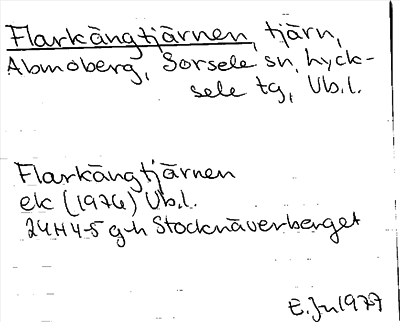 Flarkängtjärnen, tjärn,
Abmoberg, Sorsele sn, Lyck-
sele tg, Vb.l.
Flarkängtjärnen
ek (1976) Vb.l.
24H4-5 g-h Stocknäverberget
E.Ju 1977